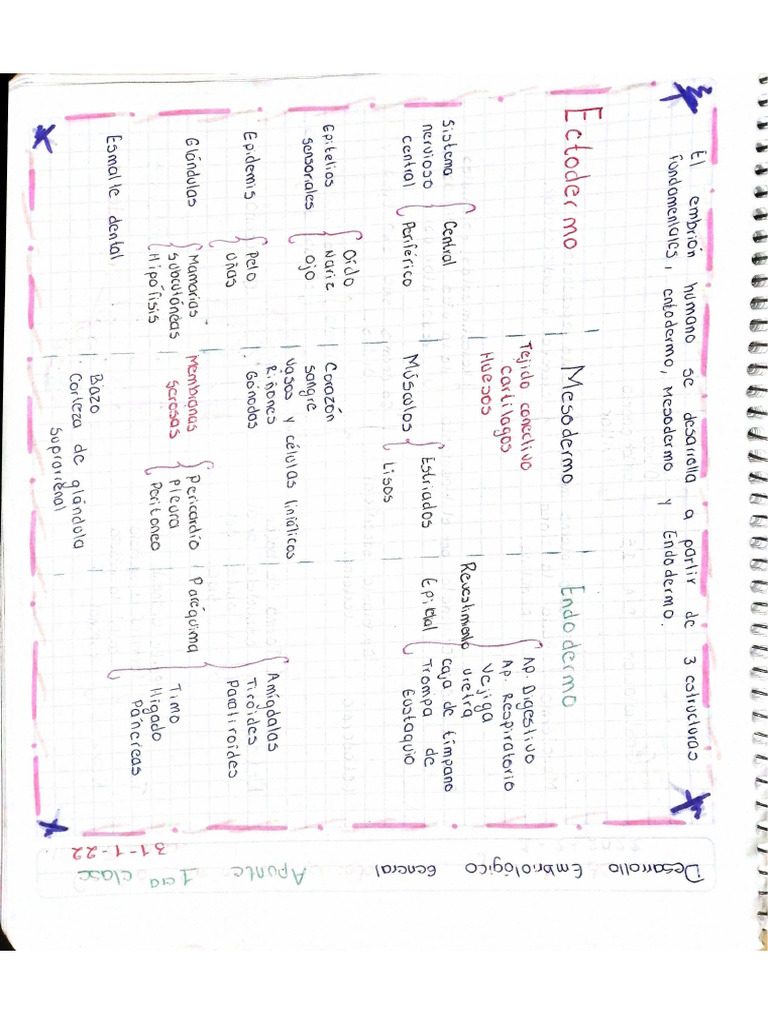 Desarrollo Embriológico General Apunte 1era clase
31-1-22
El embrión humano se desarrolla a partir de 3 estructuras
fundamentales, entodermo, Mesodermo y Endodermo.
Ectodermo
Sistema
nervioso
central
Central
Periférico
Epitelios
sensoriales
Oído
Nariz
Ojo
Epidemis
Pelo
Uñas
Glándulas
Mamarias
Subcutáneas
Hipófisis
Esmalte dental
Mesodermo
Tejido conectivo
cartílagos
Huesos
Músculos
Estriados
Lisos
Corazón
sangre
vasos y células linfáticos
Riñones
Gónodas
Membranas
Serosas
Pericardio
Pleura
Peritoneo
Bazo
Corteza de glándula
Suprarrenal
Endodermo
Revestimiento
Epitelial
Ap. Digestivo
Ap. Respiratorio
Vejiga
uretra
Caja de tímpano
Trompa de
Eustaquio
Paréquima
Amígdalas
Tiroides
Paratiroides
Timo
Hígado
Páncreas